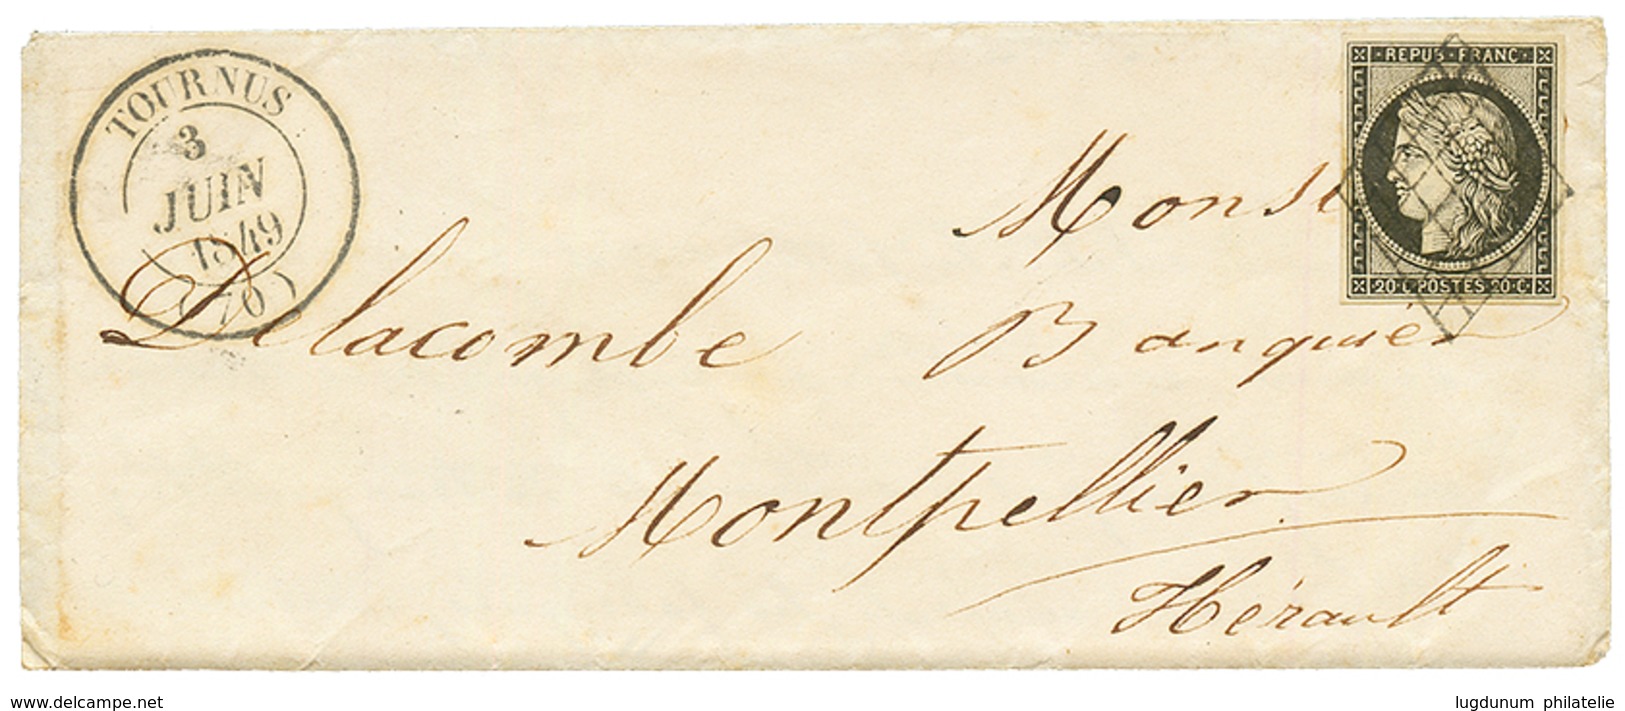 TOURNUS
3
JUIN
1849
(70)
REPUB FRANC
20 C POSTES 20 C
Monsi
Delacombe Banquier
Montpellier
Hérault
www.delcampe.net
lugdunum philatelie